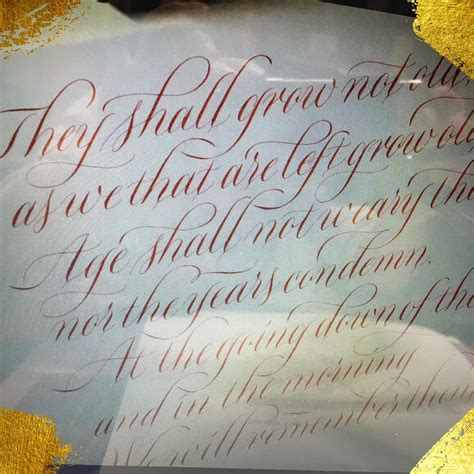 They shall grow not old
as we that are left grow old
Age shall not weary th
nor the years condemn.
At the going down of th
and in the morning
We will remember them